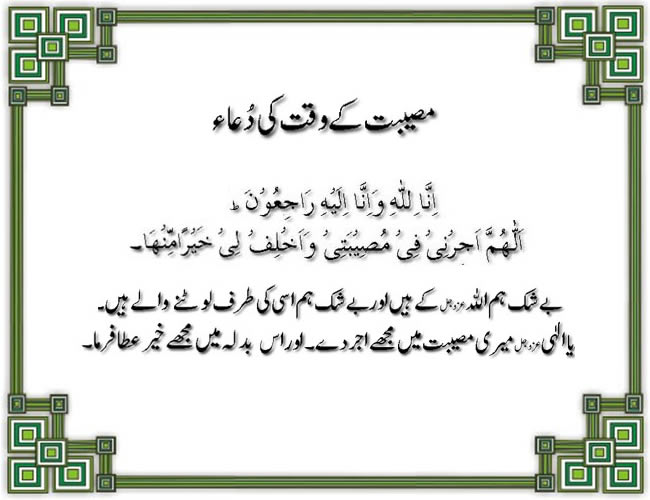 مصیبت کے وقت کی دُعاء
اِنَّا لِلّٰهِ وَاِنَّا اِلَيْهِ رَاجِعُوْنَ ؕ
اَللّٰهُمَّ اَجِرْنِیْ فِیْ مُصِیْبَتِیْ وَاَخْلِفْ لِیْ خَیْرًا مِّنْهَا۔
بے شک ہم اللہ عزوجل کے ہیں اور بے شک ہم اسی کی طرف لوٹنے والے ہیں۔
یا الٰہی عزوجل میری مصیبت میں مجھے اجر دے۔ اور اس بدلہ میں مجھے خیر عطا فرما۔